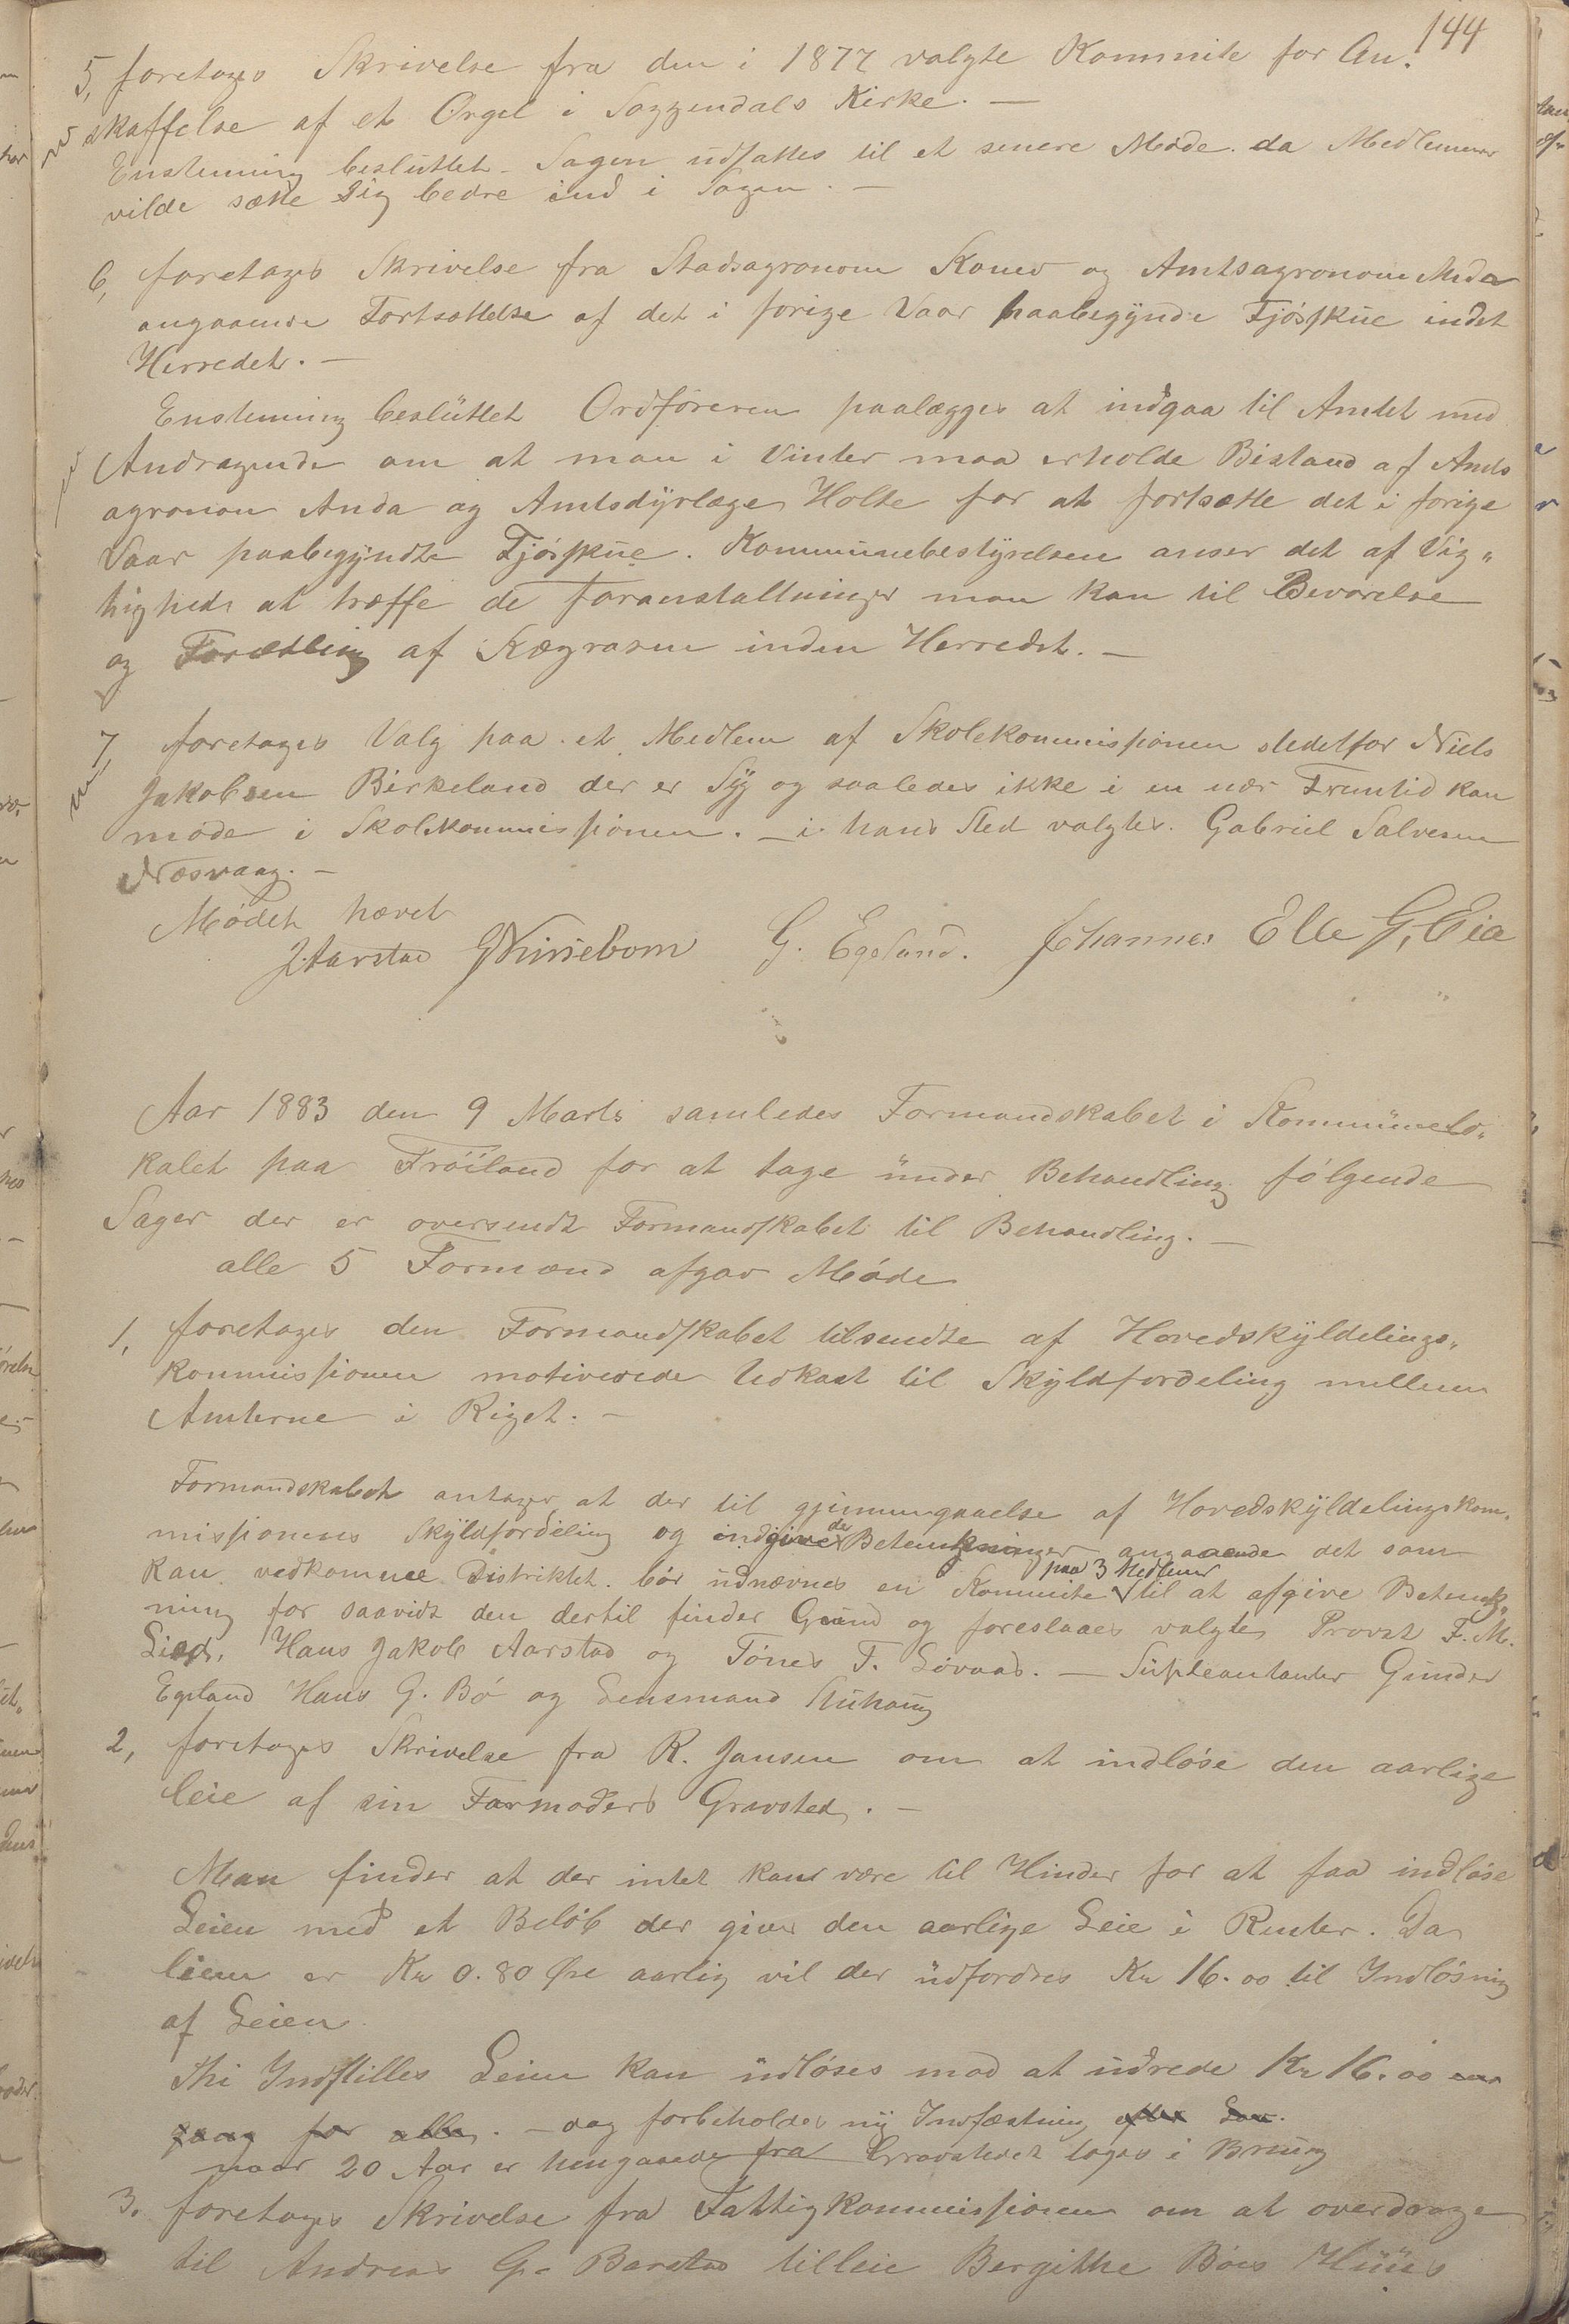 144
5, foretages Skrivelse fra den i 1877 valgte Kommite for An:
skaffelse af et Orgel i Soggendals Kirke. —
Enstemmig besluttet Sagen udsattes til et senere Møde. da Medlemmer
vilde sætte sig bedre ind i Sagen. —
6, foretages Skrivelse fra Stadsagronom og Amtsagronom Anda
angaaende Fortsættelse af det i forige Vaar paabegynde Fjøsskue indet
Herredet. —
Enstemmig besluttet Ordføreren paalægges at indgaa til Amtet med
Andragende om at man i Vinter maa erholde Bistand af Amts
agronom Anda og Amtsdyrlæge Holte for at fortsætte det i forige
Vaar paabegyndte Fjøsskue. Kommunebestyrelsen anser det af Vig„
tighed at træffe de Foranstaltninger man kan til Bevarelse
og Forædling af Kægrasen inden Herredet. —
7, foretages Valg paa et Medlem af Skolekommissionen stedetfor Niels
Jakobsen Birkeland der er Syg og saaledes ikke i en nær Fremtid kan
møde i Skolekommissionen. — i hans Sted valgtes. Gabriel Salvesen
Næsvaag. —
Mødet hævet
J. Aarstad G. Egeland. Johannes Elle G, Eia
Aar 1883 den 9 Marts samledes Formandskabet i Kommunelo„
kalet paa Frøiland for at tage under Behandling følgende
Sager der er oversendt Formandskabet til Behandling. —
alle 5 Formænd afgav Møde
1, foretages den Formandskabet tilsendte af Hovedskyldelings„
kommissionen motiverede Udkast til Skyldfordeling mellem
Amterne i Riget. —
Formandskabet antager at der til gjennemgaaelse af Hovedskyldelingskom„
missionens Skyldfordeling og indgivede Betænkninger angaaende det som
kan vedkomme Distriktet. bør udnævnes en Kommite paa 3 Medlemmer til at afgive Betænk„
ning for saavidt den dertil finder Grund og foreslaaes valgte Provst F. M.
Lied, Hans Jakob Aarstad og Tønes T. Løvaas. — Supleantanter Gunder
Egeland Hans G. Bø og Lensmand Stuhaug
2, foretages Skrivelse fra R. Jansen om at indløse den aarlige
leie af sin Farmoders Gravsted. —
Man finder at der intet kan være til Hinder for at faa indløse
Leien med et Beløb der giver den aarlige Leie i Renter. Da
leien er Kr 0.80 Øre aarlig vil der udfordres Kr 16.00 til Indløsning
af Leien
Thi Indstilles Leien kan indløses mod at udrede Kr 16.00 en
gang for alle. — dog forbeholdes ny Indfæstning efter Lov.
naar 20 Aar er hengaaede fra Gravstedet toges i Brug
3. foretages Skrivelse fra Fattigkommissionen om at overdrage
til Andreas G. Barstad tilleie Bergitte Bøes Huus